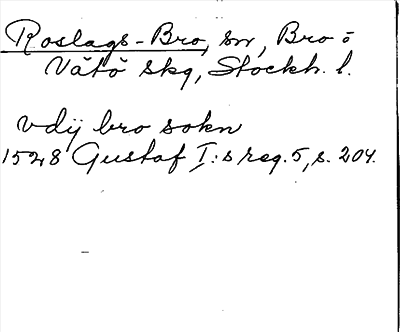 Roslags-Bro, sn, Bro o
Vätö skg, Stockh. l.
vdij bro sokn
1528 Gustaf I:s reg. 5, s. 204.